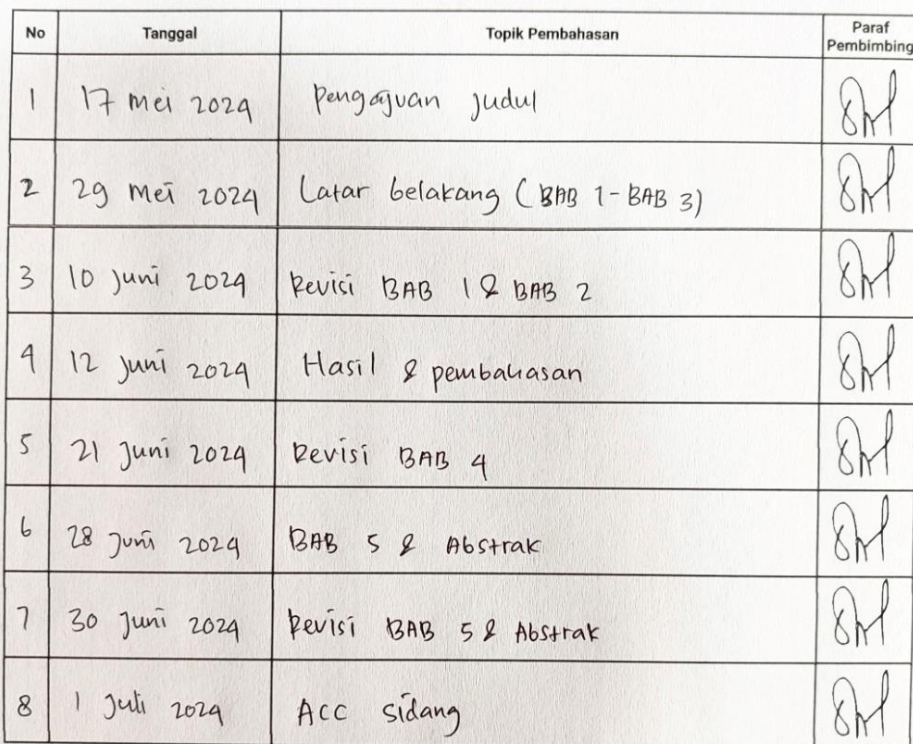 No Tanggal Topik Pembahasan Paraf Pembimbing
1 17 Mei 2024 Pengajuan Judul
2 29 Mei 2024 Latar belakang (BAB 1-BAB 3)
3 10 Juni 2024 Revisi BAB 1 & BAB 2
4 12 Juni 2024 Hasil & pembahasan
5 21 Juni 2024 Revisi BAB 4
6 28 Juni 2024 BAB 5 & Abstrak
7 30 Juni 2024 Revisi BAB 5 & Abstrak
8 1 Juli 2024 ACC Sidang